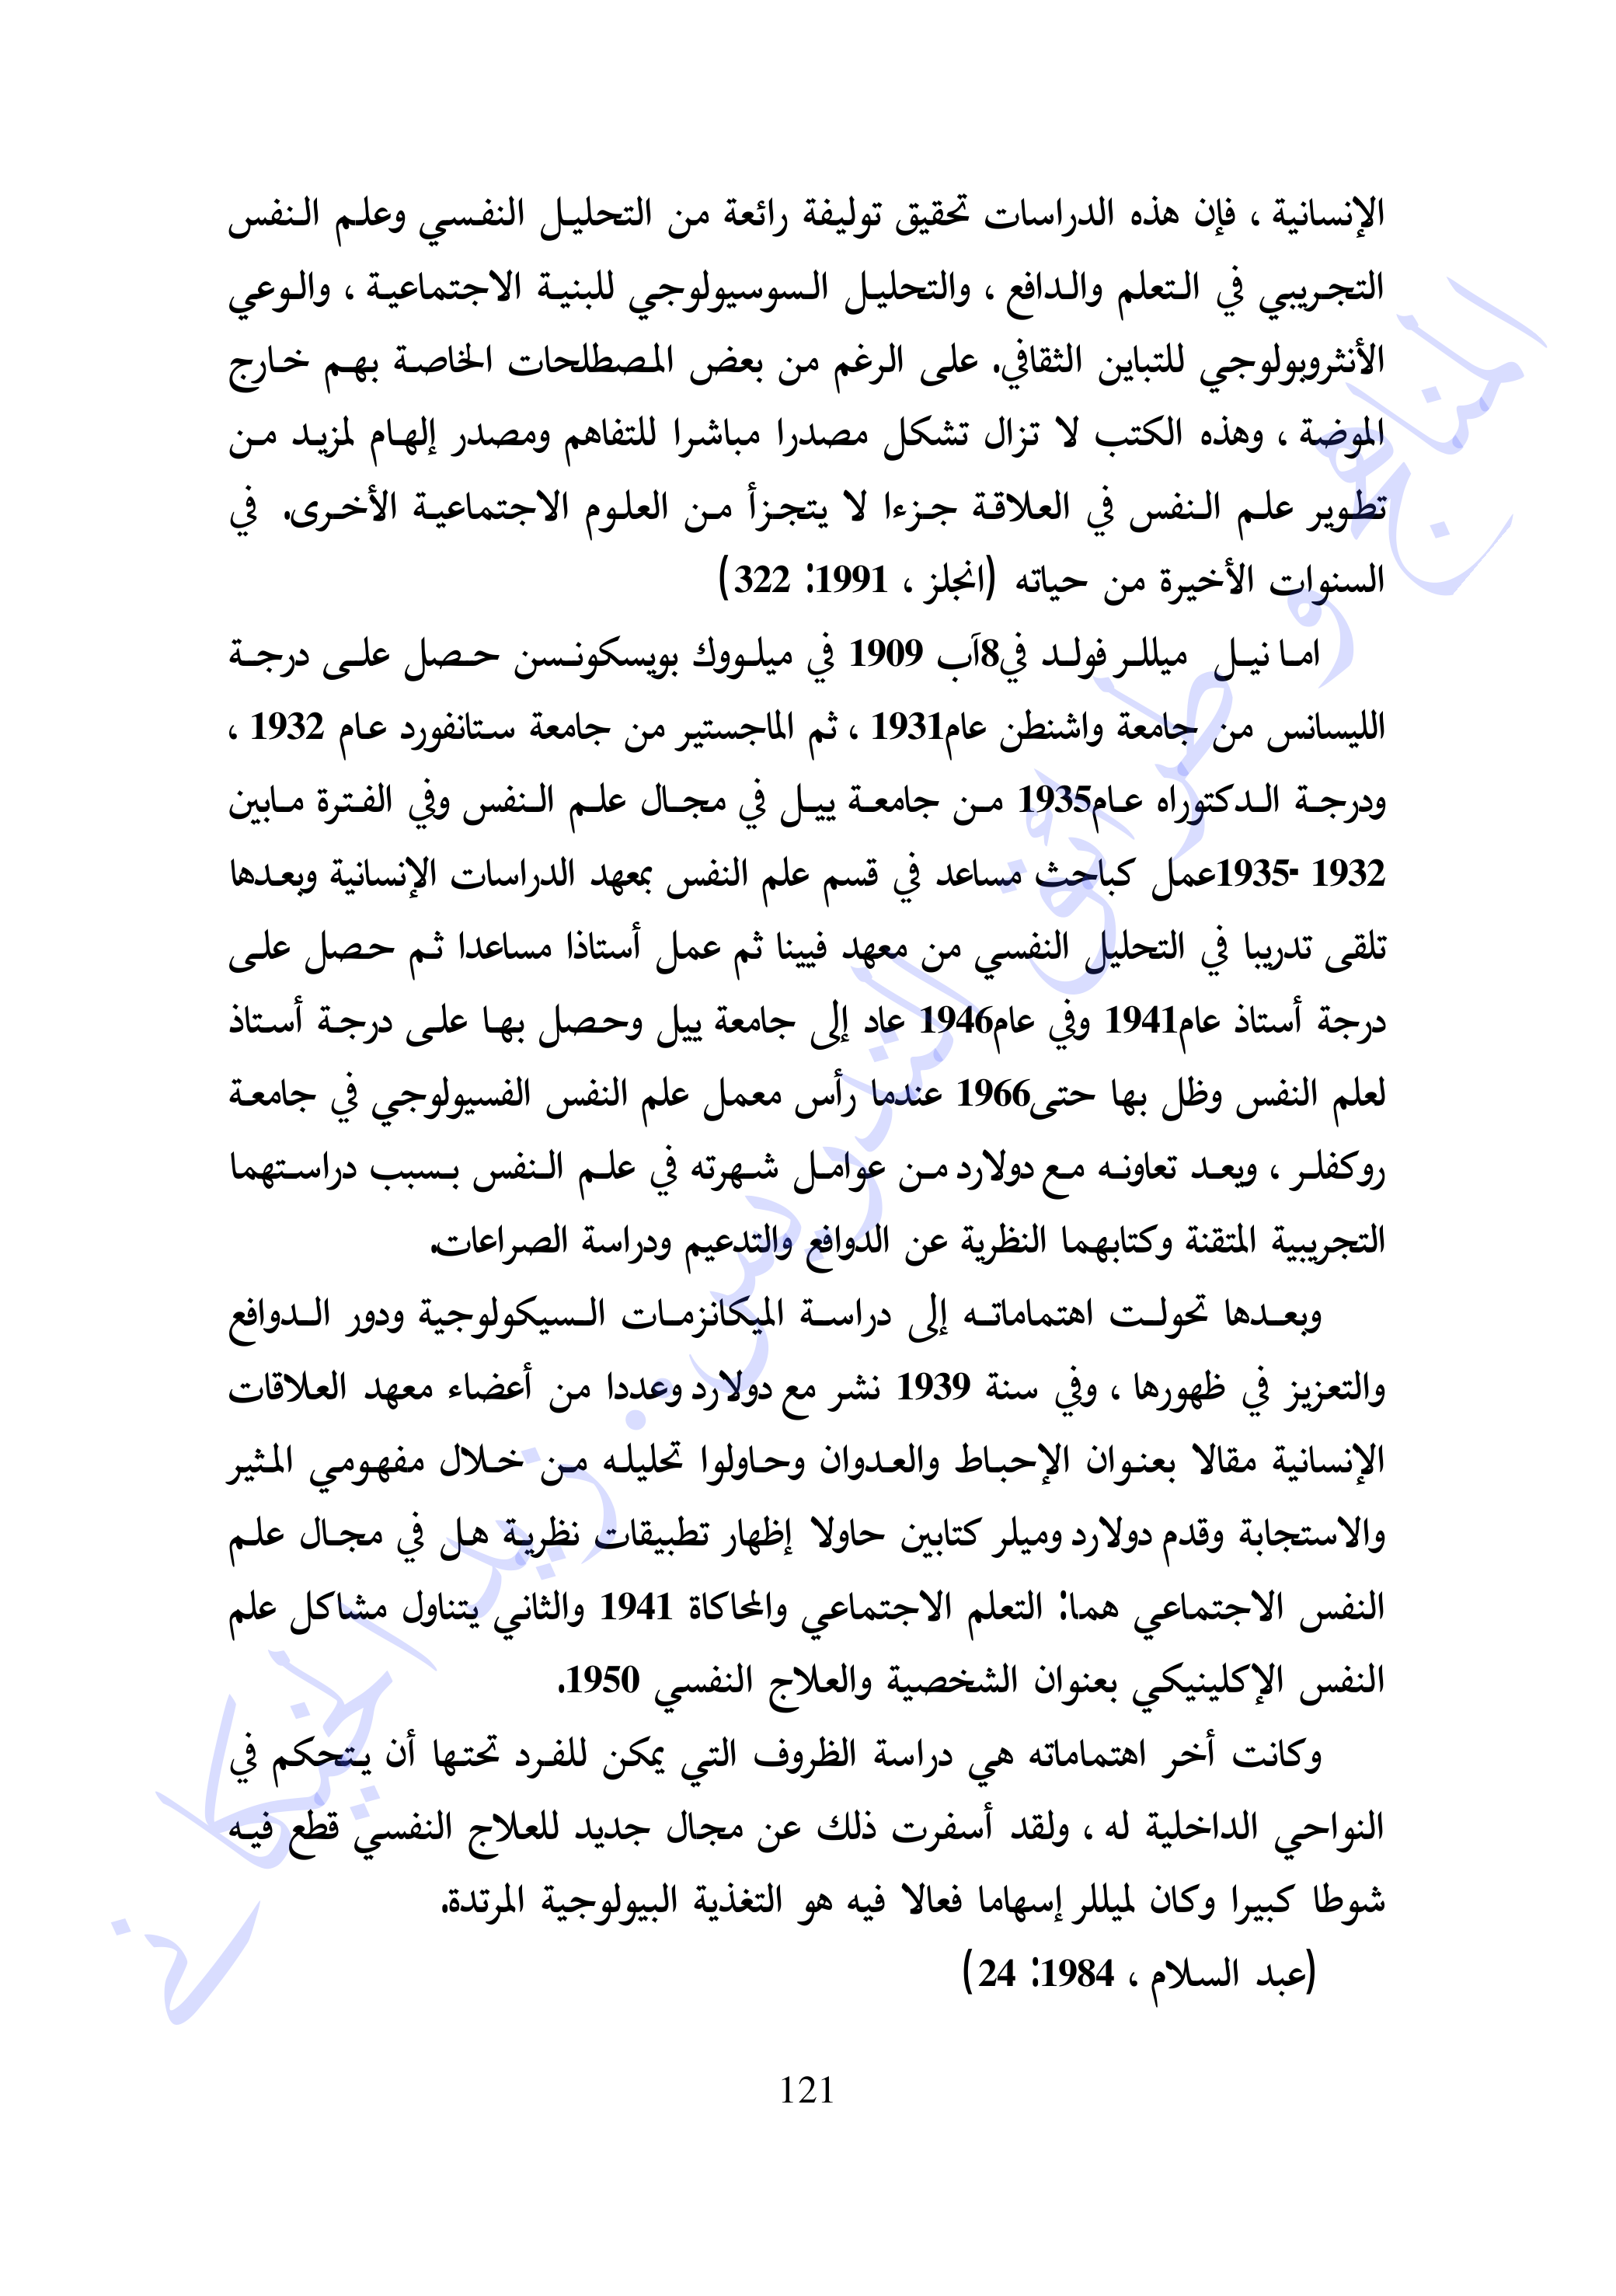 الإنسانية ، فإن هذه الدراسات تحقيق توليفة رائعة من التحليل النفسي وعلم النفس
التجريبي في التعلم والدافع ، والتحليل السوسيولوجي للبنية الاجتماعية ، والوعي
الأنثروبولوجي للتباين الثقافي. على الرغم من بعض المصطلحات الخاصة بهم خارج
الموضة ، وهذه الكتب لا تزال تشكل مصدرا مباشرا للتفاهم ومصدر إلهام لمزيد من
تطوير علم النفس في العلاقة جزءا لا يتجزأ من العلوم الاجتماعية الأخرى. في
السنوات الأخيرة من حياته (انجلز ، 1991: 322)
اما نيل ميللر فولد في8آب 1909 في ميلووك بويسكونسن حصل على درجة
الليسانس من جامعة واشنطن عام1931 ، ثم الماجستير من جامعة ستانفورد عام 1932 ،
ودرجة الدكتوراه عام1935 من جامعة ييل في مجال علم النفس وفي الفترة مابين
1932 -1935عمل كباحث مساعد في قسم علم النفس بمعهد الدراسات الإنسانية وبعدها
تلقى تدريبا في التحليل النفسي من معهد فيينا ثم عمل أستاذا مساعدا ثم حصل على
درجة أستاذ عام1941 وفي عام1946 عاد إلى جامعة ييل وحصل بها على درجة أستاذ
لعلم النفس وظل بها حتى1966 عندما رأس معمل علم النفس الفسيولوجي في جامعة
روكفلر ، ويعد تعاونه مع دولارد من عوامل شهرته في علم النفس بسبب دراستهما
التجريبية المتقنة وكتابهما النظرية عن الدوافع والتدعيم ودراسة الصراعات.
وبعدها تحولت اهتماماته إلى دراسة الميكانزمات السيكولوجية ودور الدوافع
والتعزيز في ظهورها ، وفي سنة 1939 نشر مع دولارد وعددا من أعضاء معهد العلاقات
الإنسانية مقالا بعنوان الإحباط والعدوان وحاولوا تحليله من خلال مفهومي المثير
والاستجابة وقدم دولارد وميلر كتابين حاولا إظهار تطبيقات نظرية هل في مجال علم
النفس الاجتماعي هما: التعلم الاجتماعي والمحاكاة 1941 والثاني يتناول مشاكل علم
النفس الإكلينيكي بعنوان الشخصية والعلاج النفسي 1950.
وكانت أخر اهتماماته هي دراسة الظروف التي يمكن للفرد تحتها أن يتحكم في
النواحي الداخلية له ، ولقد أسفرت ذلك عن مجال جديد للعلاج النفسي قطع فيه
شوطا كبيرا وكان لميللر إسهاما فعالا فيه هو التغذية البيولوجية المرتدة.
(عبد السلام ، 1984: 24)
121